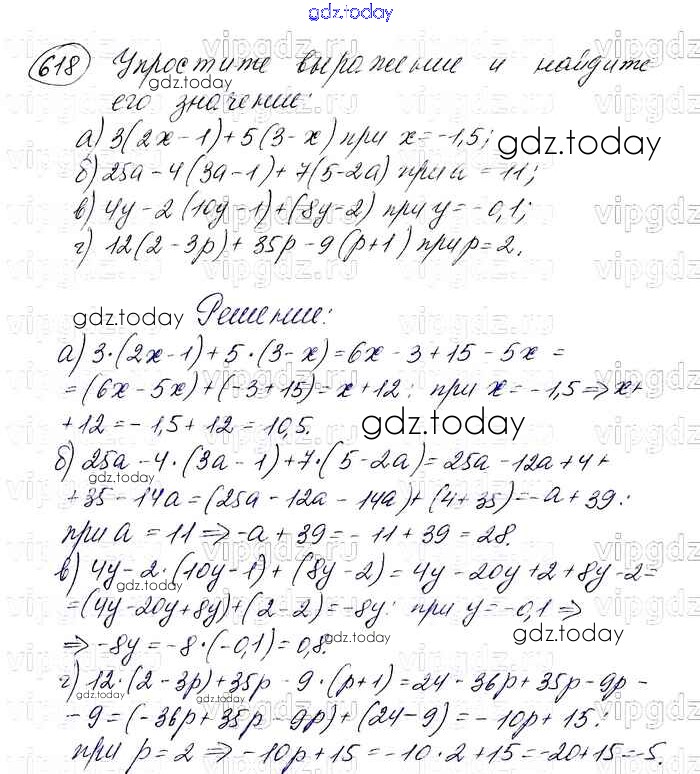 gdz.today
618 Упростите выражение и найдите
его значение:
а) 3(2x-1)+5(3-x) при x=-1,5;
б) 25a-4(3a-1)+7(5-2a) при a=11;
в) 4y-2(10y-1)+(8y-2) при y=-0,1;
г) 12(2-3p)+35p-9(p+1) при p=2.
gdz.today
Решение:
а) 3·(2x-1)+5·(3-x)=6x-3+15-5x=
=(6x-5x)+(-3+15)=x+12: при x=-1,5⇒x+
+12=-1,5+12=10,5.
gdz.today
б) 25a-4·(3a-1)+7·(5-2a)=25a-12a+4+
+35-14a=(25a-12a-14a)+(4+35)=-a+39:
при a=11⇒-a+39=-11+39=28.
в) 4y-2·(10y-1)+(8y-2)=4y-20y+2+8y-2=
=(4y-20y+8y)+(2-2)=-8y: при y=-0,1⇒
⇒-8y=-8·(-0,1)=0,8.
gdz.today
г) 12·(2-3p)+35p-9·(p+1)=24-36p+35p-9p-
-9=(-36p+35p-9p)+(24-9)=-10p+15:
при p=2⇒-10p+15=-10·2+15=-20+15=-5.